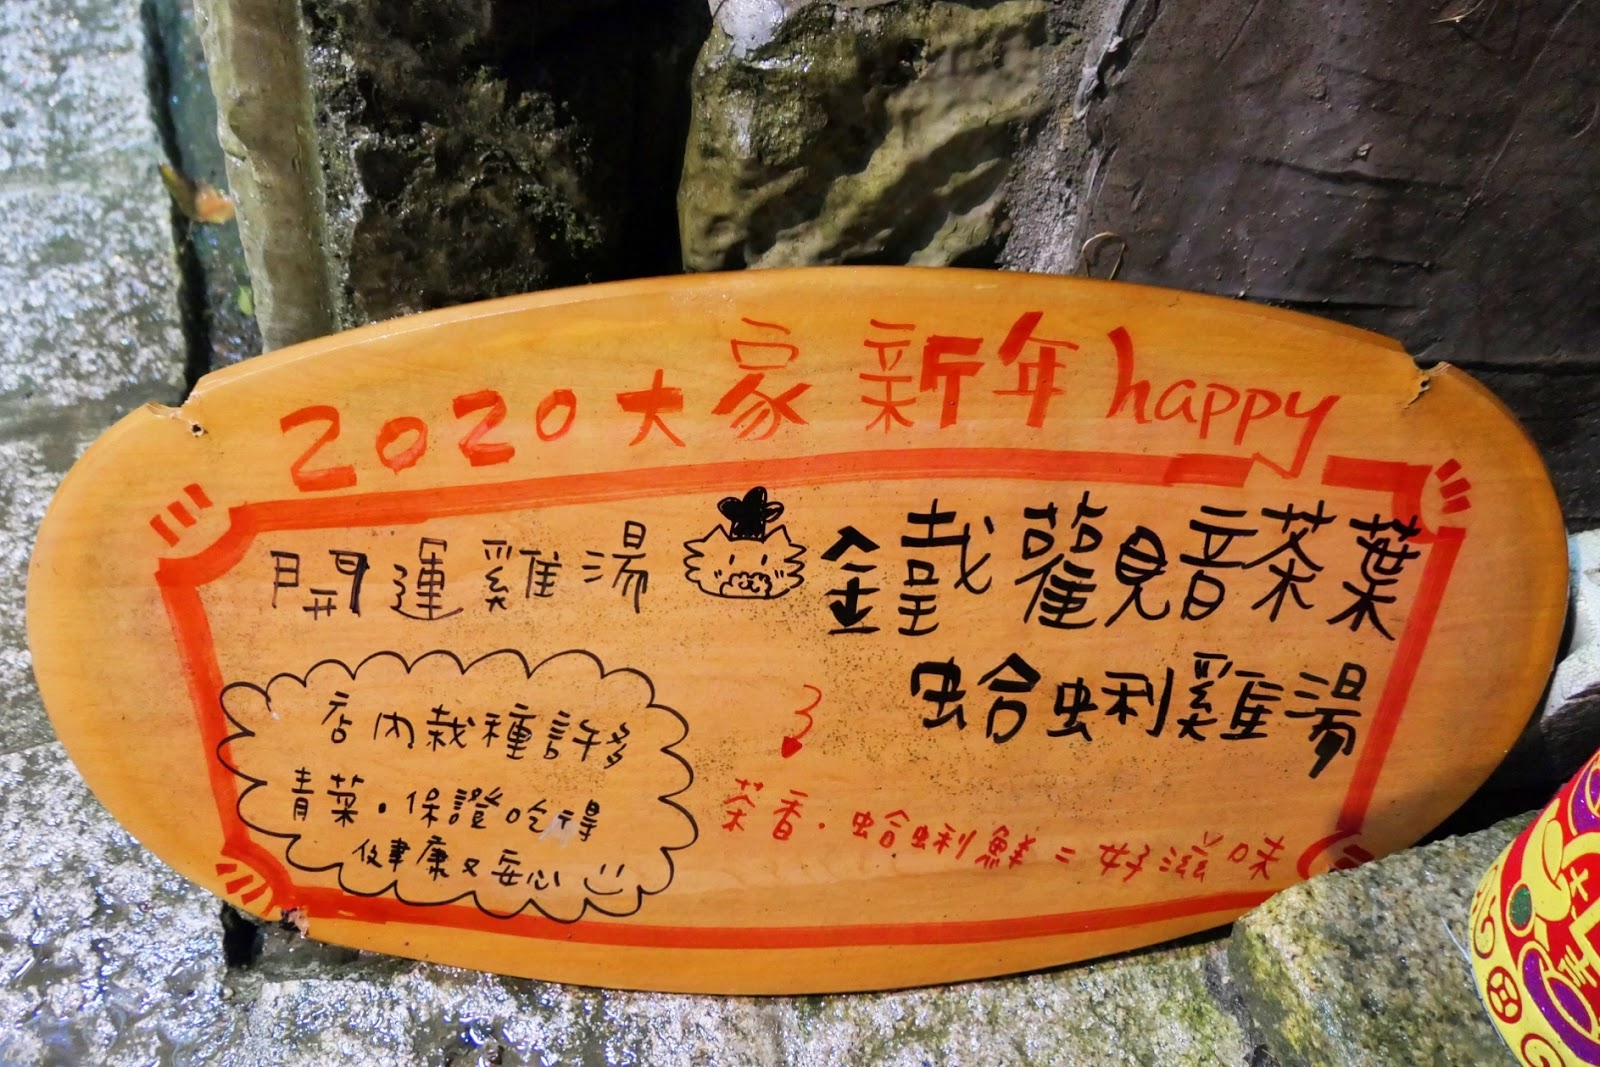 2020大家新年happy
開運雞湯
鐵觀音茶葉
蛤蜊雞湯
店內栽種許多
青菜。保證吃得
健康又安心
茶香。蛤蜊鮮=好滋味